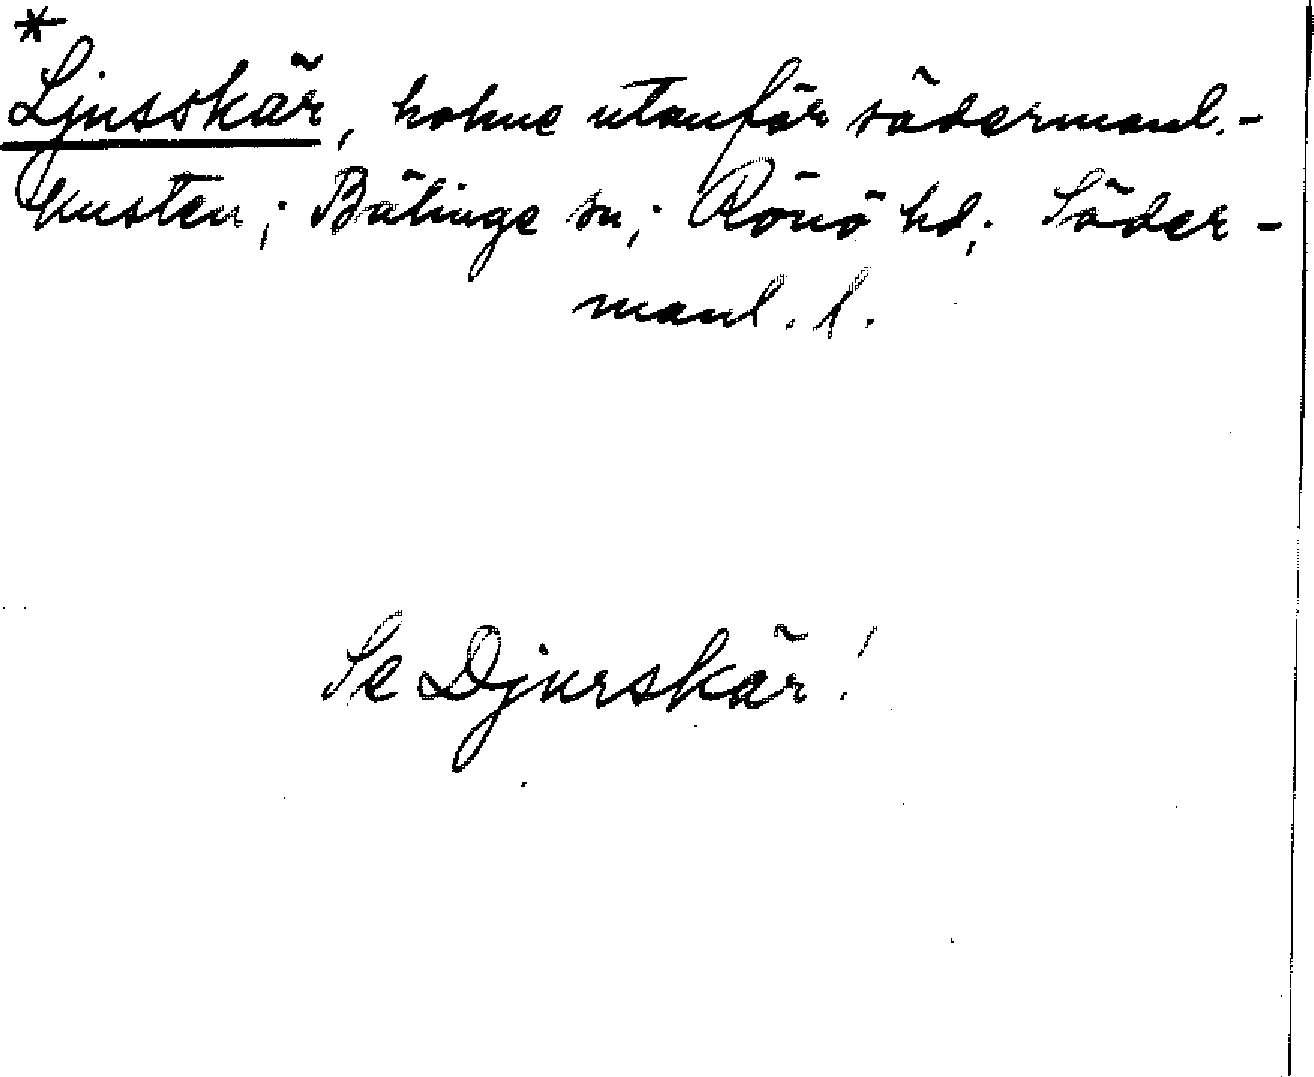 *
Ljusskär, holme utanför södermanl.-
kusten; Bälinge sn; Rönö hd; Söder-
manl. l.
Se Djurskär!